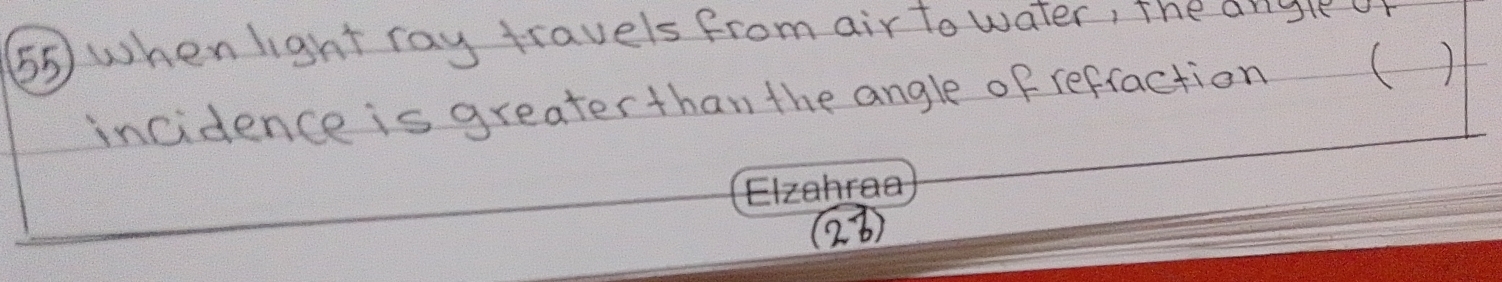 (55) when light ray travels from air to water, the angle of
incidence is greater than the angle of refraction ( )
Elzahraa